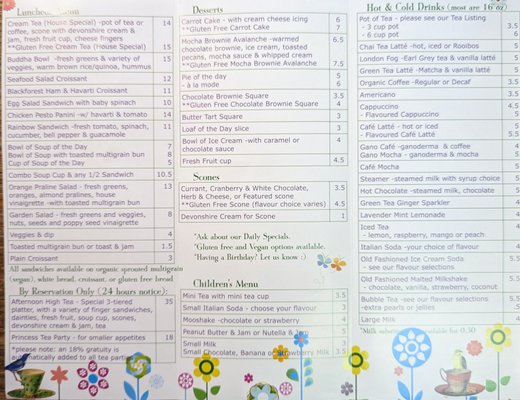 Luncheon Menu
Cream Tea (House Special) -pot of tea or 14
coffee, scone with devonshire cream &
jam, fresh fruit cup, cheese fingers
**Gluten Free Cream Tea (House Special)
Buddha Bowl -fresh greens & variety of 15
veggies, warm brown rice/quinoa, hummus
Seafood Salad Croissant 12
Blackforest Ham & Havarti Croissant 11
Egg Salad Sandwich with baby spinach 10
Chicken Pesto Panini -w/ havarti & tomato 14
Rainbow Sandwich -fresh tomato, spinach, 11
cucumber, bell pepper & guacamole
Bowl of Soup of the Day 7
Bowl of Soup with toasted multigrain bun 8
Cup of Soup of the Day 5
Combo Soup Cup & any 1/2 Sandwich 10.5
Orange Praline Salad - fresh greens, 13
oranges, almond pralines, house
vinaigrette -with toasted multigrain bun
Garden Salad - fresh greens and veggies, 8
nuts, seeds and poppy seed vinaigrette
Veggies & dip 4
Toasted multigrain bun or toast & jam 1.5
Plain Croissant 3
All sandwiches available on organic sprouted multigrain
(vegan), white bread, croissant, or gluten free bread
By Reservation Only (24 hours notice):
Afternoon High Tea - Special 3-tiered 35
platter, with a variety of finger sandwiches,
dainties, fresh fruit, soup cup, scones,
devonshire cream & jam, tea
Princess Tea Party - for smaller appetites 18
*please note: an 18% gratuity is
automatically added to all tea parties
Desserts
Carrot Cake - with cream cheese icing 6
**Gluten Free Carrot Cake 7
Mocha Brownie Avalanche -warmed 6.5
chocolate brownie, ice cream, toasted
pecans, mocha sauce & whipped cream
**Gluten Free Mocha Brownie Avalanche 7.5
Pie of the day 5
- à la mode 6
Chocolate Brownie Square 3.5
**Gluten Free Chocolate Brownie Square 4
Butter Tart Square 3
Loaf of the Day slice 3
Bowl of Ice Cream -with caramel or 4
chocolate sauce
Fresh Fruit cup 4.5
Scones
Currant, Cranberry & White Chocolate, 3.5
Herb & Cheese, or Featured scone
**Gluten Free Scone (flavour choice varies) 4.5
Devonshire Cream for Scone 1
*Ask about our Daily Specials.
*Gluten free and Vegan options available.
*Having a Birthday? Let us know :)
Children's Menu
Mini Tea with mini tea cup 3.5
Small Italian Soda - choose your flavour 3
Mooshake -chocolate or strawberry 4
Peanut Butter & Jam or Nutella & Jam 5
Small Milk 3
Small Chocolate, Banana or Strawberry Milk 3.5
Hot & Cold Drinks (most are 16 oz)
Pot of Tea - please see our Tea Listing
- 3 cup pot 3.5
- 6 cup pot 5
Chai Tea Latté -hot, iced or Rooibos 5
London Fog -Earl Grey tea & vanilla latté 5
Green Tea Latté -Matcha & vanilla latté 5
Organic Coffee -Regular or Decaf 3.5
Americano 3.5
Cappuccino 4.5
- Flavoured Cappuccino 5
Café Latté - hot or iced 5
- Flavoured Café Latté 5.5
Gano Café -ganoderma & coffee 4
Gano Mocha - ganoderma & mocha 5
Café Mocha 5
Steamer -steamed milk with syrup choice 5
Hot Chocolate -steamed milk, chocolate 4
Green Tea Ginger Sparkler 4
Lavender Mint Lemonade 4
Iced Tea 4
- lemon, raspberry, mango or peach
Italian Soda -your choice of flavour 4
Old Fashioned Ice Cream Soda 5.5
- see our flavour selections
Old Fashioned Malted Milkshake 5.5
- chocolate, vanilla, strawberry, coconut
Bubble Tea -see our flavour selections 5.5
-extra pearls or jellies
Large Milk 4
*Milk available for 0.50